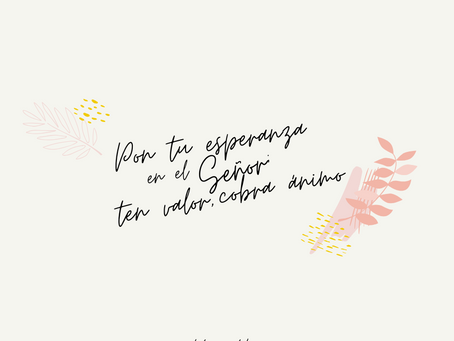 Pon tu esperanza
en el Señor
ten valor, cobra ánimo